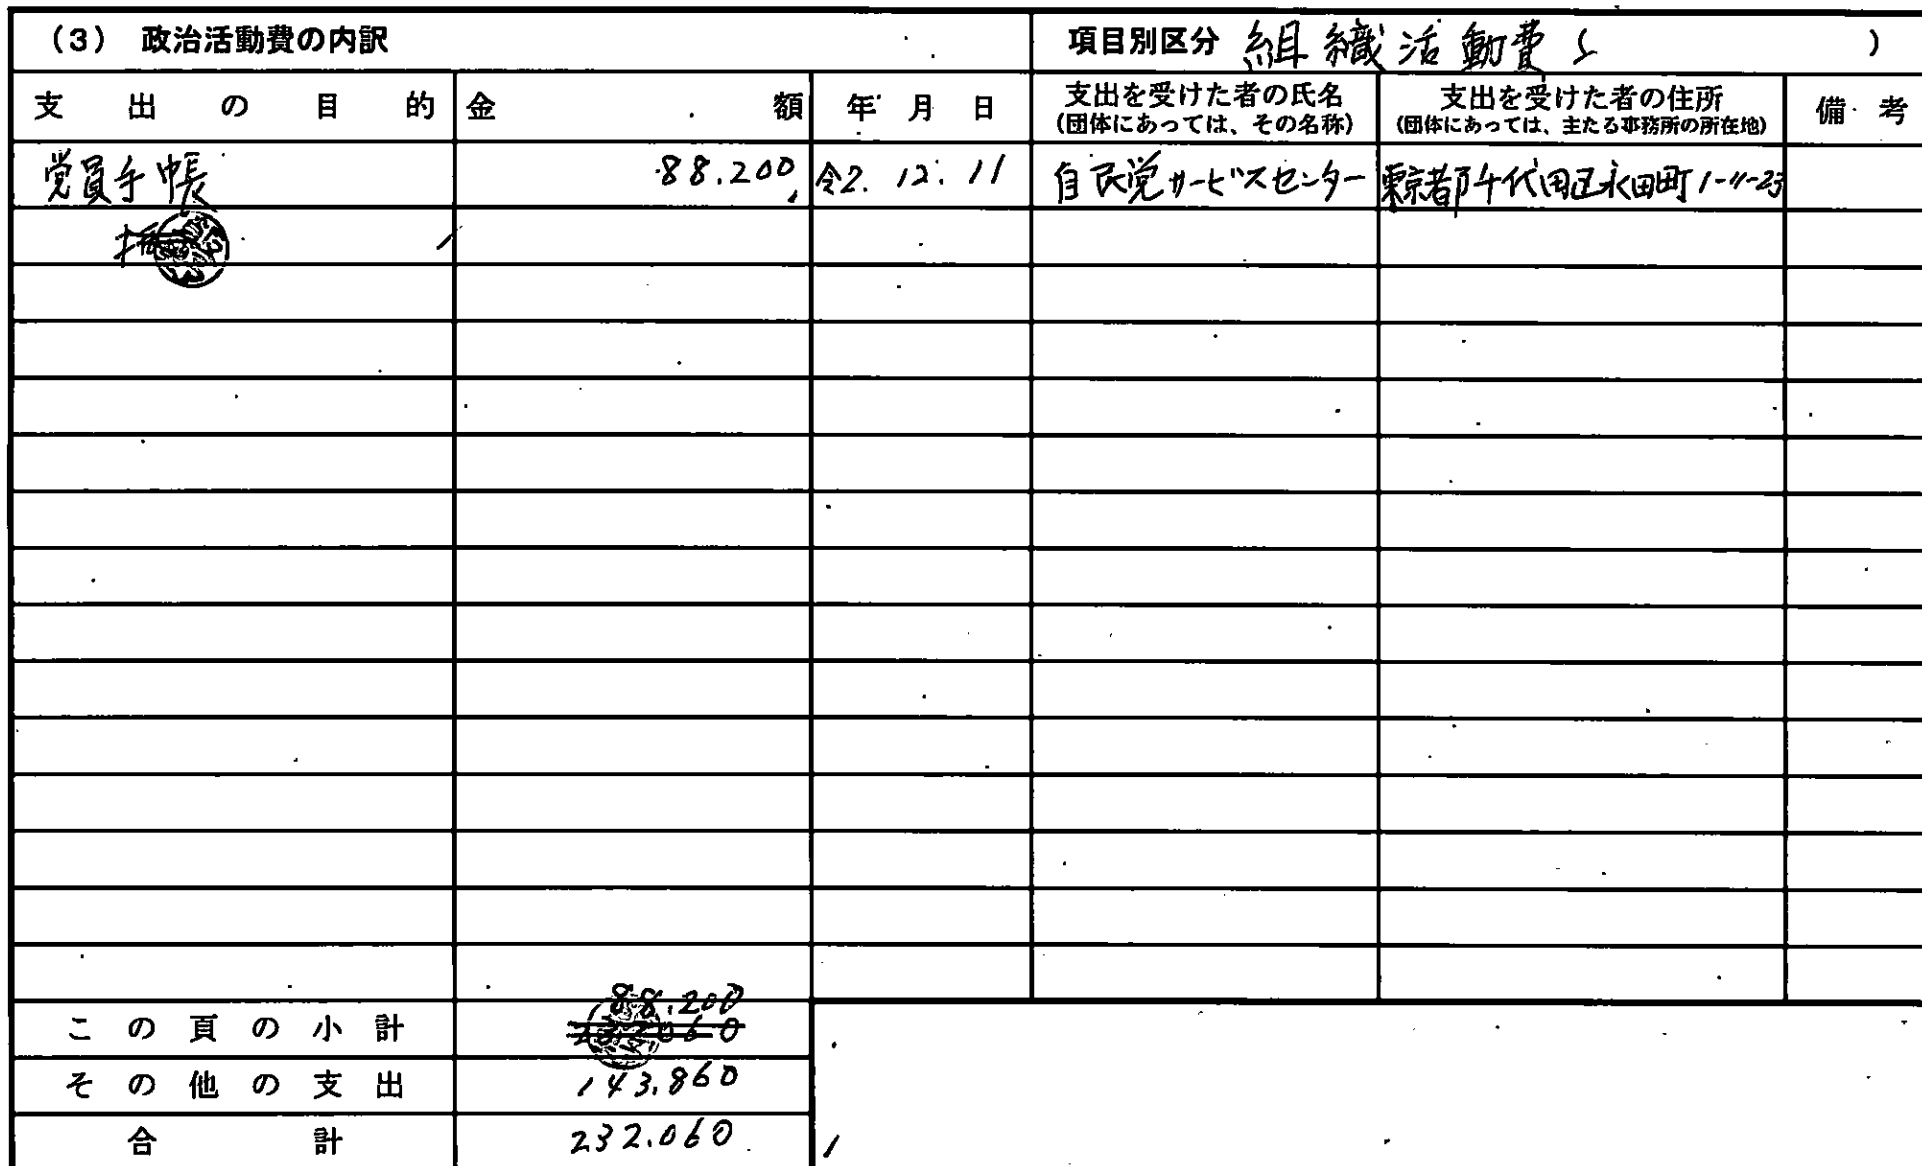 (3) 政治活動費の内訳 項目別区分 組織活動費 ( )
支出の目的 金額 年月日 支出を受けた者の氏名 (団体にあっては、その名称) 支出を受けた者の住所 (団体にあっては、主たる事務所の所在地) 備考
党員手帳 88.200 令2.12.11 自民党サービスセンター 東京都千代田区永田町1-11-23
88.200
この頁の小計 232060
その他の支出 143.860
合計 232.060